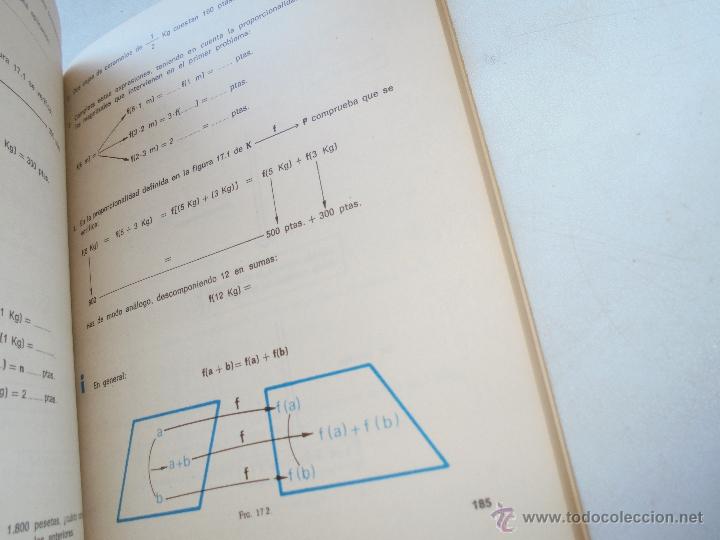 ura 17.1 de
Kg) = 300 ptas.
1 Kg) = ......
(1 Kg) = ......
) = n ...... ptas.
g) = 2 ...... ptas.
1.800 pesetas,
anteriores
de caramelos de 1/2 Kg cuestan 100 ptas.
Completa estas expresiones, teniendo en cuenta la proporcionalidad
las magnitudes que intervienen en el primer problema:
f(6·1 m) = ...... f(1 m) = ...... ptas.
f(6 m) = f(3·2 m) = 3·f(......) = ...... ptas.
f(2·3 m) = 2 ...... = ...... ptas.
En la proporcionalidad definida en la figura 17.1 de K f P comprueba que se
verifica:
Kg) = f(5 + 3 Kg) = f[(5 Kg) + (3 Kg)] = f(5 Kg) + f(3 Kg)
= 500 ptas. + 300 ptas.
de modo análogo, descomponiendo 12 en sumas:
f(12 Kg) =
i En general:
f(a + b) = f(a) + f(b)
a f f(a)
a+b f f(a)+f(b)
b f f(b)
FIG. 17.2.
185
© www.todocoleccion.net